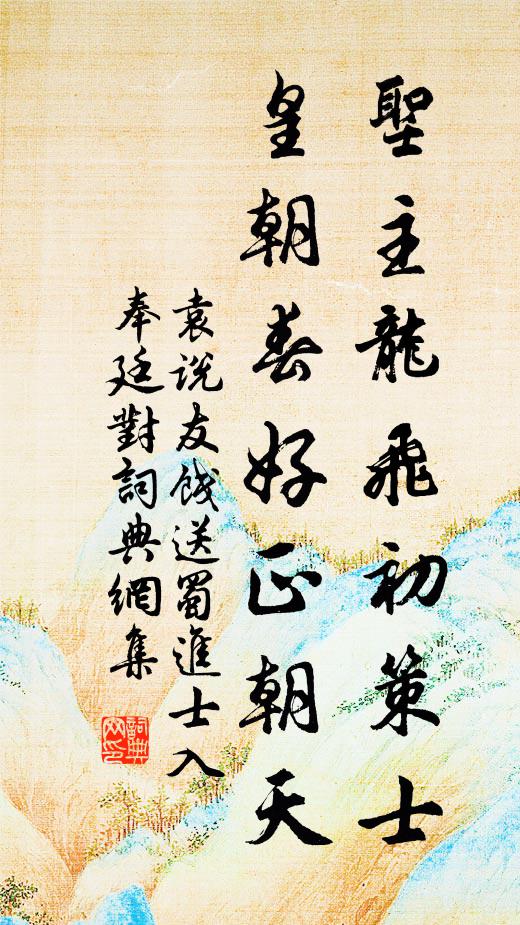 聖主龍飛初策士
皇朝春好正朝天
袁說友餞送蜀進士入
奉廷對詞典網集
詞典
網印